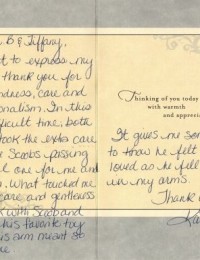 B & Tiffany,
t to express my
thank you for
ndness, care and
onalism. In this
ficult time, both
ook the extra care
e Scoobs passing
l one for me and
. What touched me
care and gentleness
with Scoob and
his favorite toy
is arm meant so
me
Thinking of you today
with warmth
and apprecia
It gives me som
to know he felt
loved as he fell
in my arms.
Thank
Ka